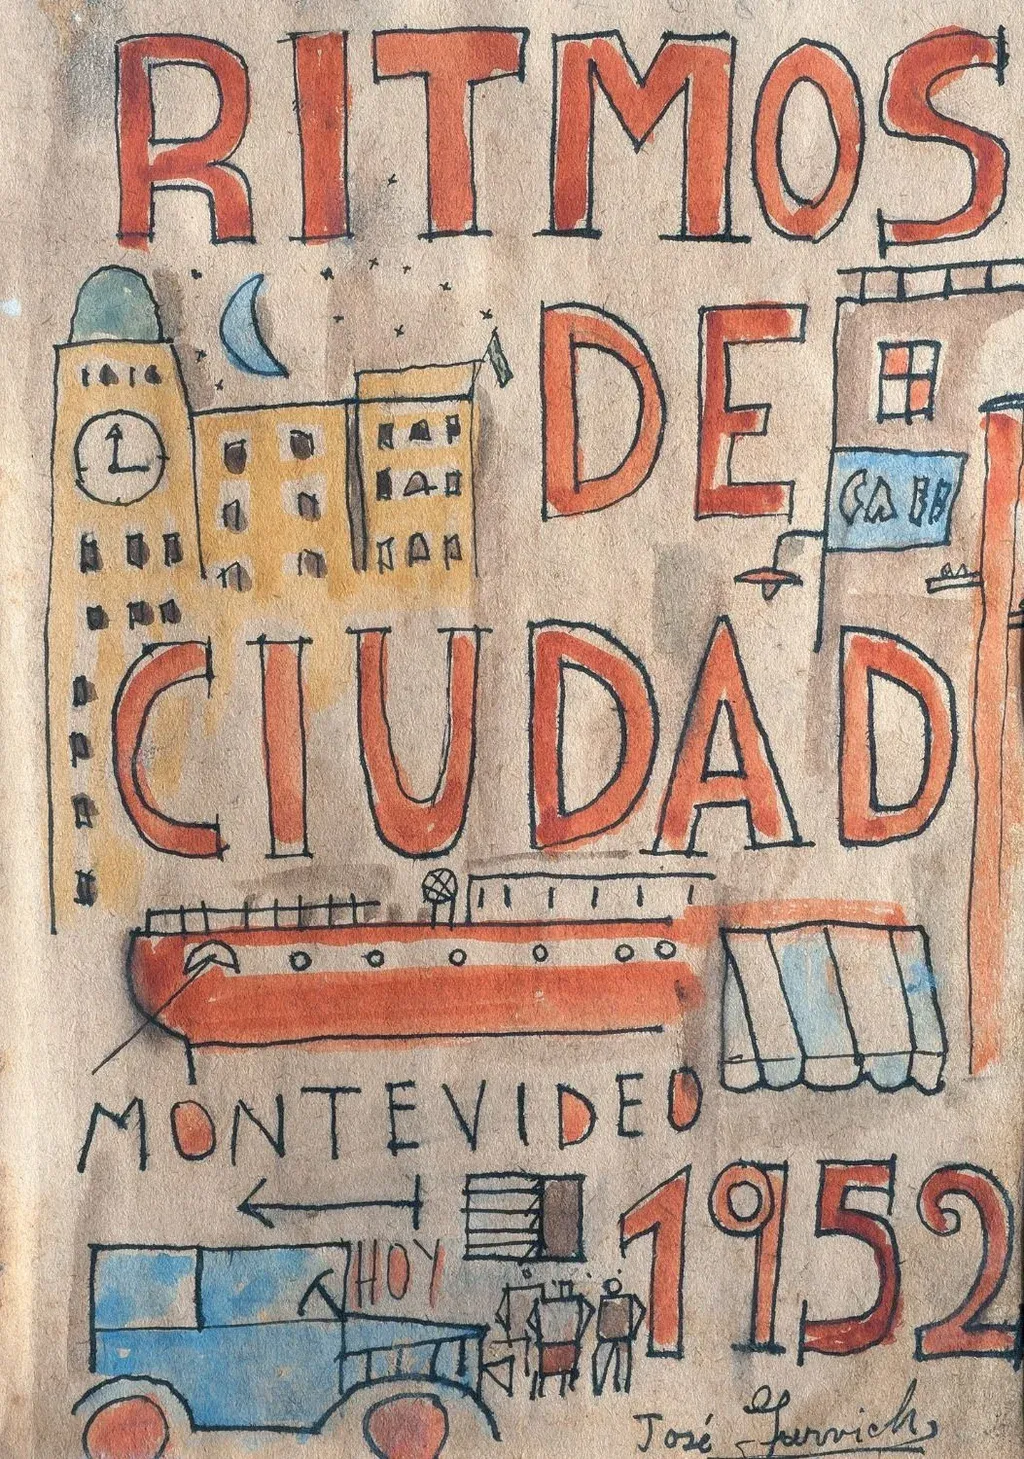 RITMOS
DE
CIUDAD
MONTEVIDEO
HOY
1952
José Gurvich